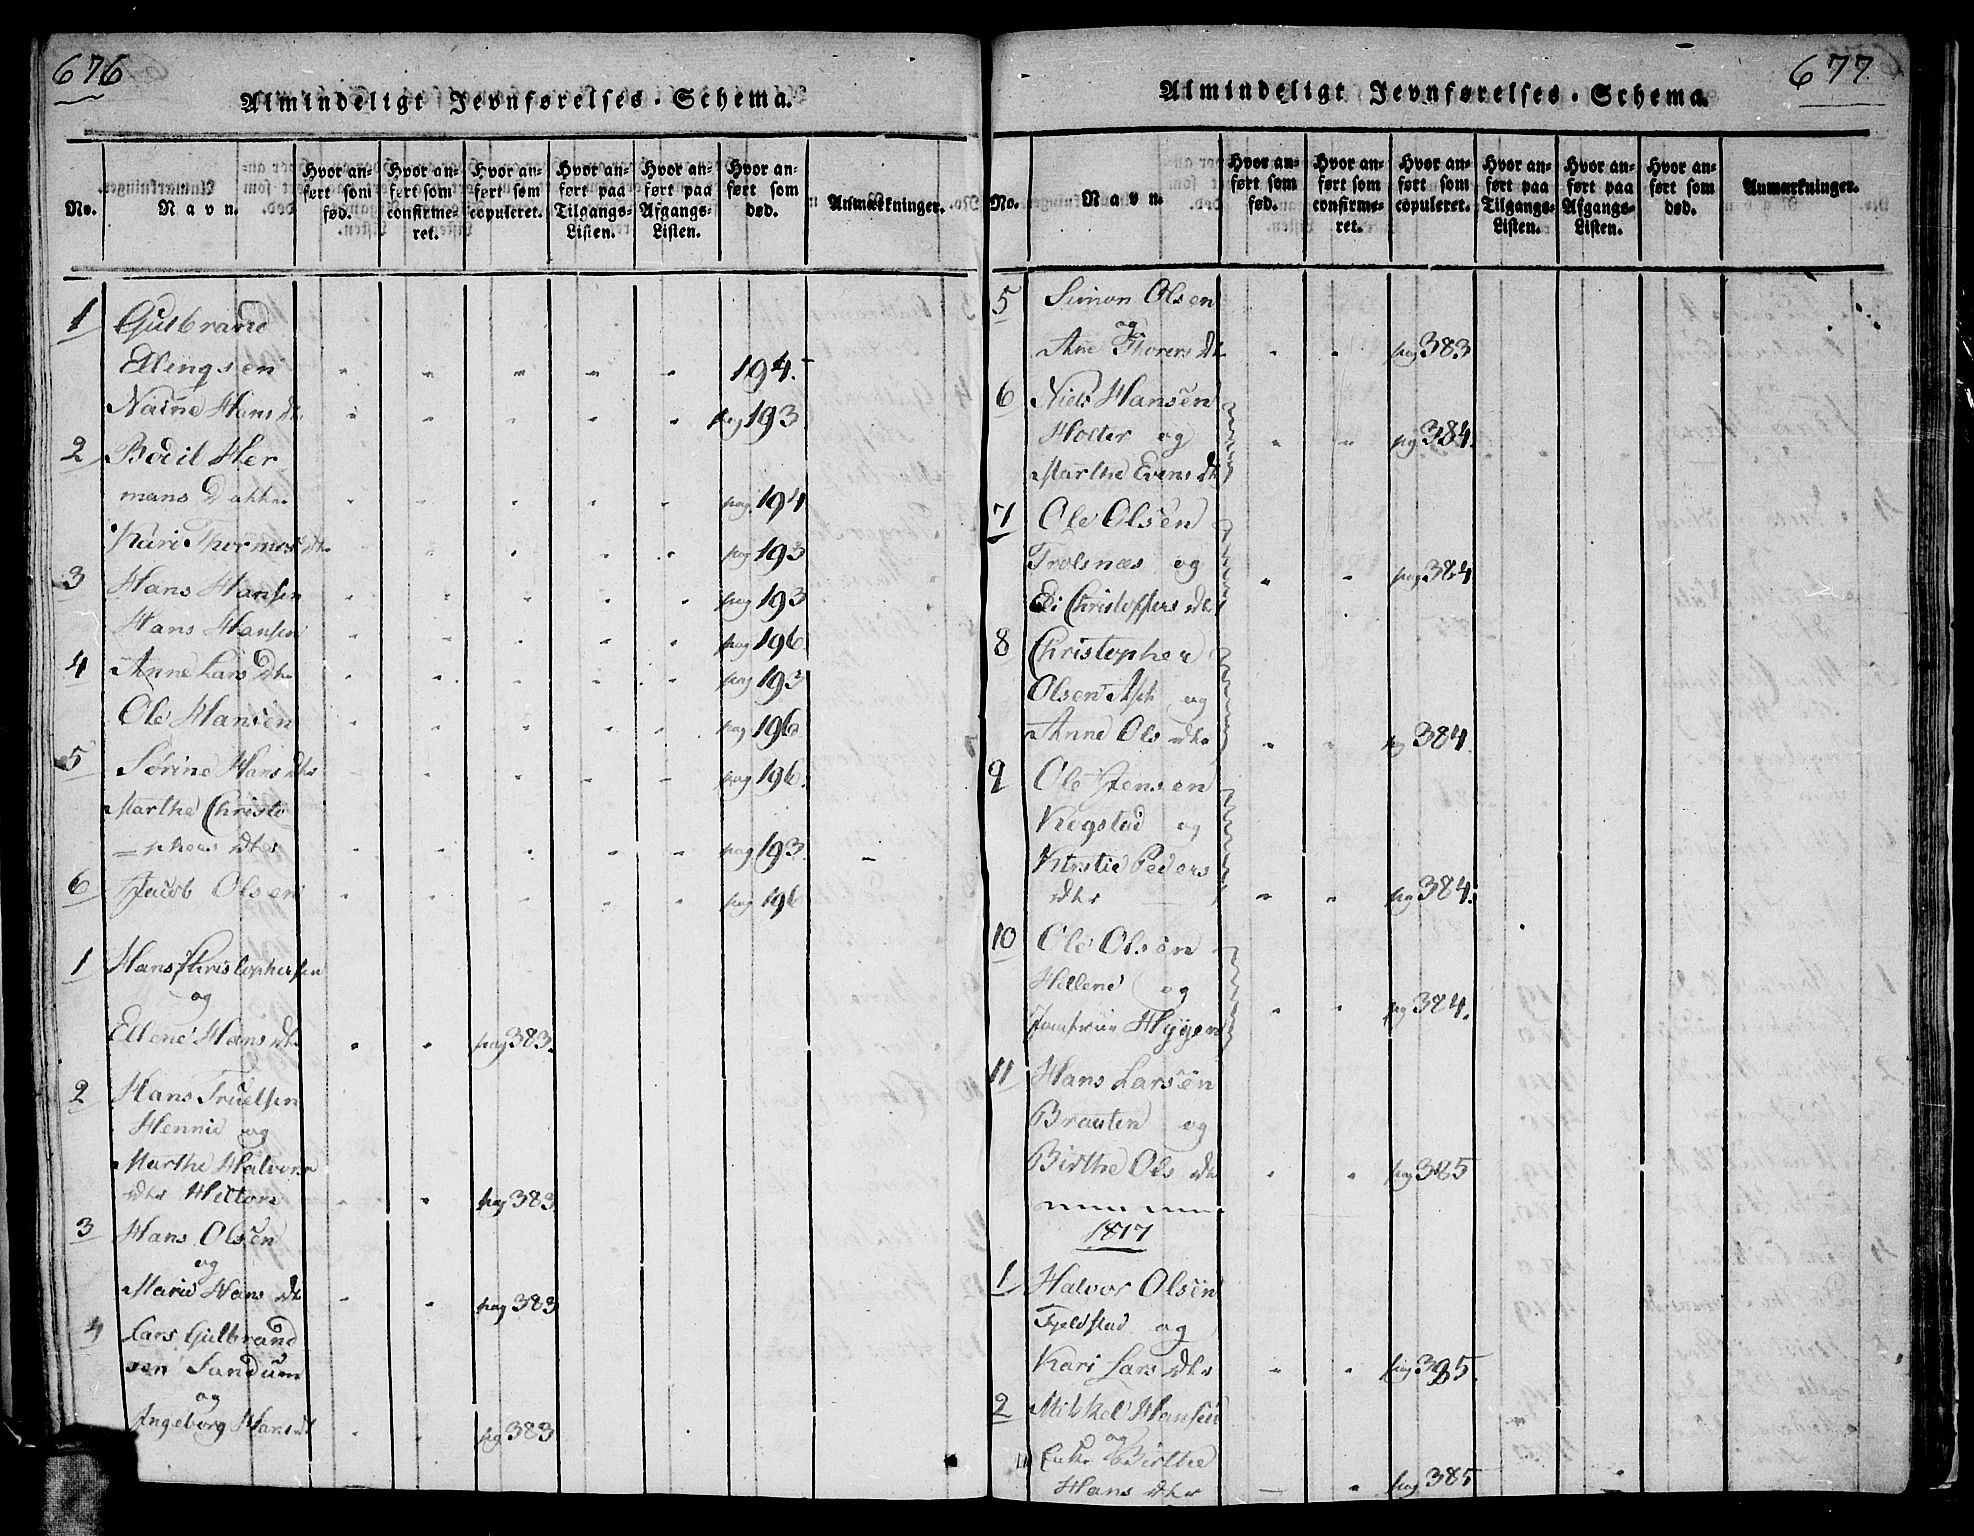 676
Almindeligt Jevnførelses-Schema.
No.
Navn.
Hvor anført som fød.
Hvor anført som confirmeret.
Hvor anført som copuleret.
Hvor anført paa Tilgangs-Listen.
Hvor anført paa Afgangs-Listen.
Hvor anført som død.
Anmærkninger.
1 Gulbrand
Ellingsen " " " " " 194.
Hans dtr " " " " " pag 193
2 Bodil Her
mans Datter " " " " " pag. 194
Kari dtr " " " " pag 193
3 Hans Hansen " " " " " pag 193
Hans Hansen " " " " pag 196
4 Anne Lars dtr " " " " " pag 193
Ole Hansen " " " " " pag 196
5 Sørine Hans dtr " " " " pag 196.
Marthe Christo
=phers dtr " " " " " pag 193.
6 Jacob Olsen " " " " " pag 196
1 Hans Christophersen
og
Ellene Hans dtr " " pag 383.
2 Hans Truelsen
Hennie og
Marthe Halvors
dtr " " pag 383
3 Hans Olsen
og
Marie Hans dtr " " pag 383
4 Lars Gulbrand
sen Sandum
og
Ingeborg Hans dt " " pg 383
677
Almindeligt Jevnførelses-Schema.
No.
Navn.
Hvor anført som fød.
Hvor anført som confirmeret.
Hvor anført som copuleret.
Hvor anført paa Tilgangs-Listen.
Hvor anført paa Afgangs-Listen.
Hvor anført som død.
Anmærkninger.
5 Simon Olsen
og
Ane Thorers dtr " " pag 383
6 Niels Hansen
Holter og " " pag 384.
Marthe Evens dtr
7 Ole Olsen
Trolsnæs og " " pag 384
Christophers dtr
8 Christopher
Olsen Ask og
Anne Ols dtr " " pag 384.
9 Ole Jensen
Kogstad og
Kirstie Peders
dtr " " pag 384.
10 Ole Olsen
Hellene og " " pag 384.
Jomfrue Hygen
11 Hans Larsen
Brauten og
Birthe Ols dtr " " pag 385
1817
1 Halvor Olsen
Fjeldstad og
Kari Lars dtr " " pag 385.
2 Mikkel Hansen
og
Enke Birthe
Hans dtr " " pag 385